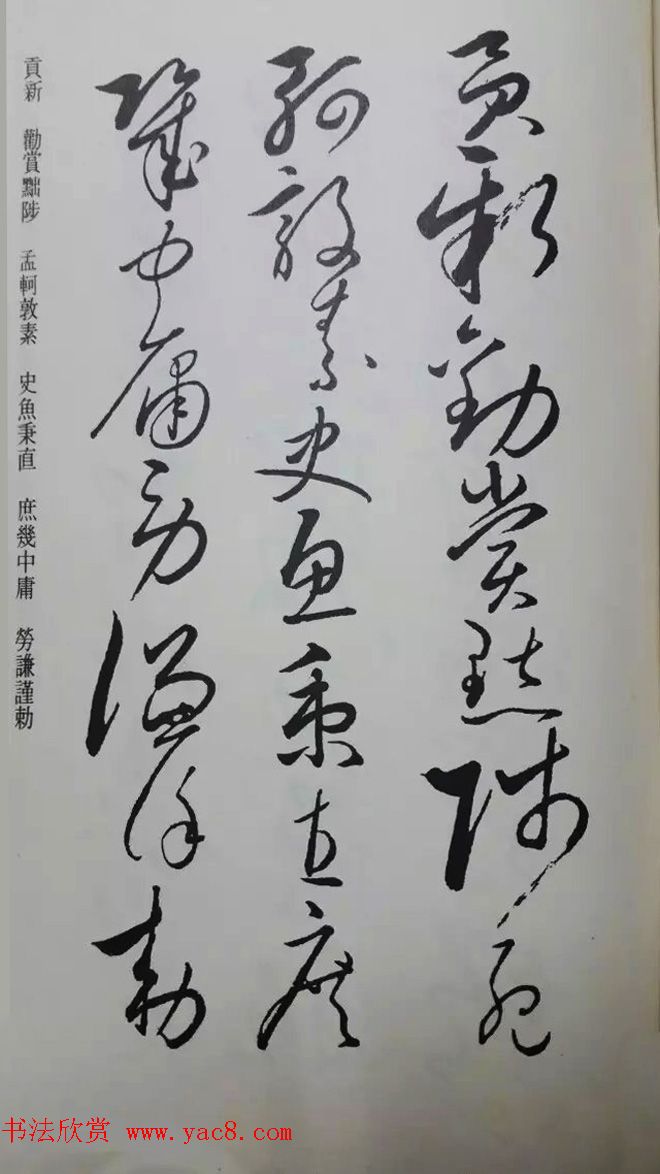 貢新勸賞黜陟孟
軻敦素史魚秉直庶
幾中庸勞謙謹敕
貢新 勸賞黜陟 孟軻敦素 史魚秉直 庶幾中庸 勞謙謹勅
书法欣赏 www.yac8.com